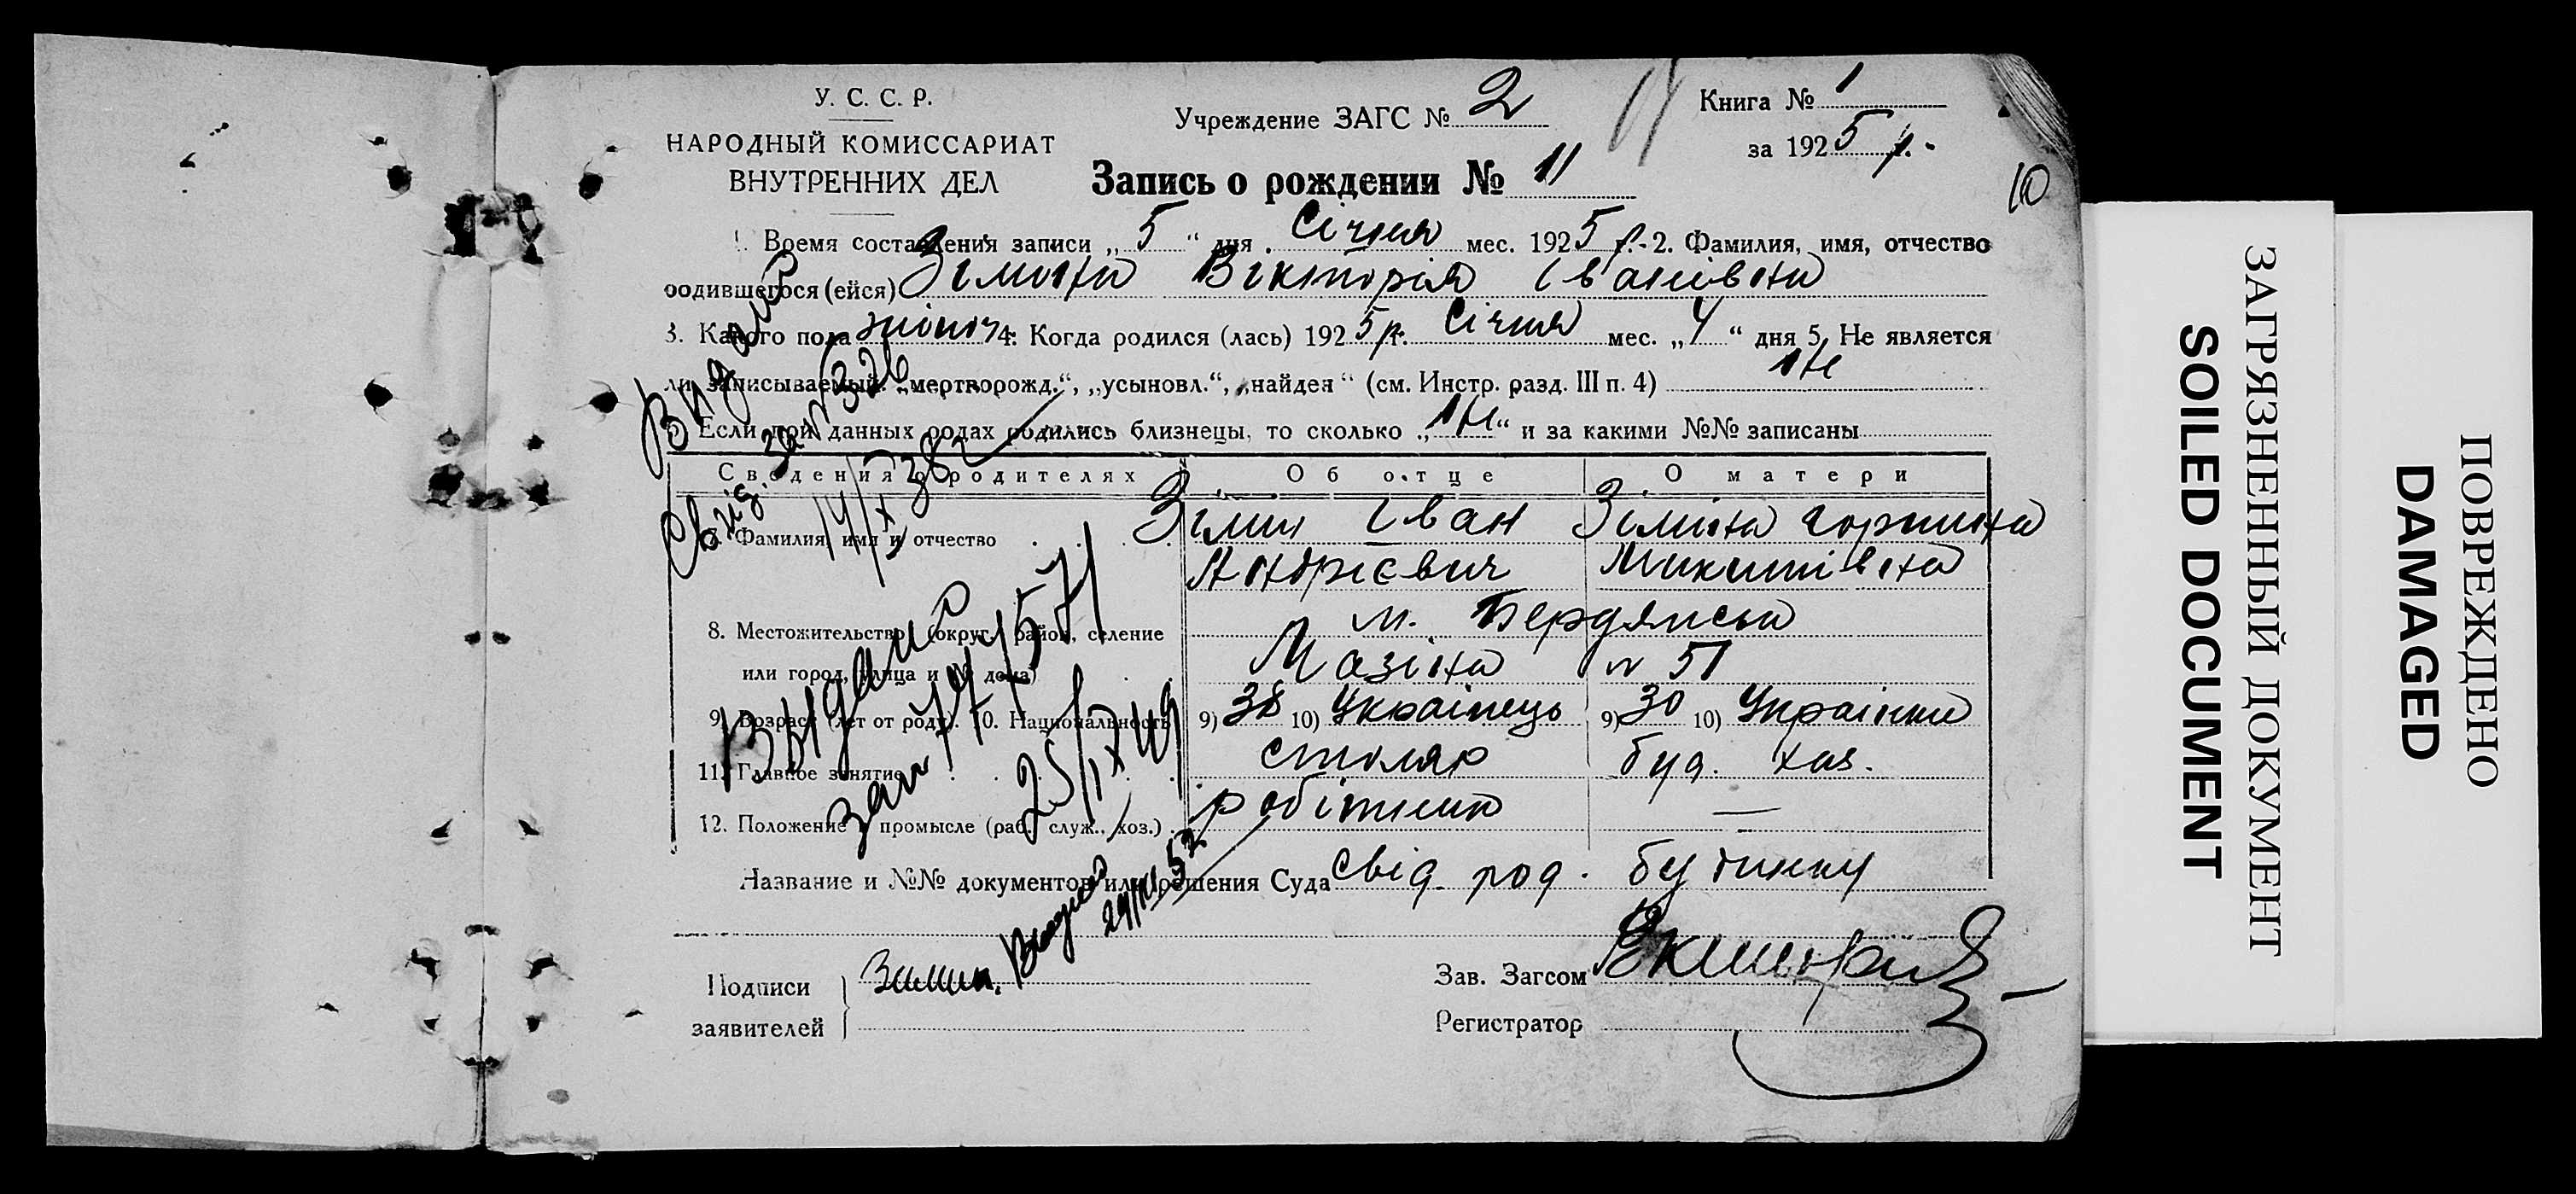 У. С. С. Р.
НАРОДНЫЙ КОМИССАРИАТ
ВНУТРЕННИХ ДЕЛ
Учреждение ЗАГС № 2
Книга № 1
за 1925 р.
10
Запись о рождении № 11
1. Время составления записи „5“ дня Січня мес. 1925 р. 2. Фамилия, имя, отчество
родившегося (ейся) Зіміна Вікторія Іванівна
3. Какого пола жіноч 4. Когда родился (лась) 1925 р. Січня мес. „4“ дня 5. Не является
ли записываемый: „мертворожд.“, „усыновл.“, „найден“ (см. Инстр. разд. III п. 4) Ні
6. Если при данных родах родились близнецы, то сколько „Ні“ и за какими №№ записаны
Сведения о родителях Об отце О матери
7. Фамилия, имя и отчество Зімин Іван Зіміна Горпина
Андрієвич Микитівна
8. Местожительство (округ, район, селение м. Бердянськ
или город, улица и № дома) Мазіна № 51
9. Возраст (лет от роду). 10. Национальность 9) 38 10) Українець 9) 30 10) Українка
11. Главное занятие столяр буд. хаз.
12. Положение в промысле (раб., служ., хоз.) робітник —
Название и №№ документов или решения Суда Свід. род. будинку
Подписи
заявителей
Зимин.
Зав. Загсом
Регистратор
Видана
Свид. за № 326
14/X 38 г
Выдана
за № 744571
25/IX 49
29/XII 52
ЗАГРЯЗНЕННЫЙ ДОКУМЕНТ
SOILED DOCUMENT
ПОВРЕЖДЕНО
DAMAGED